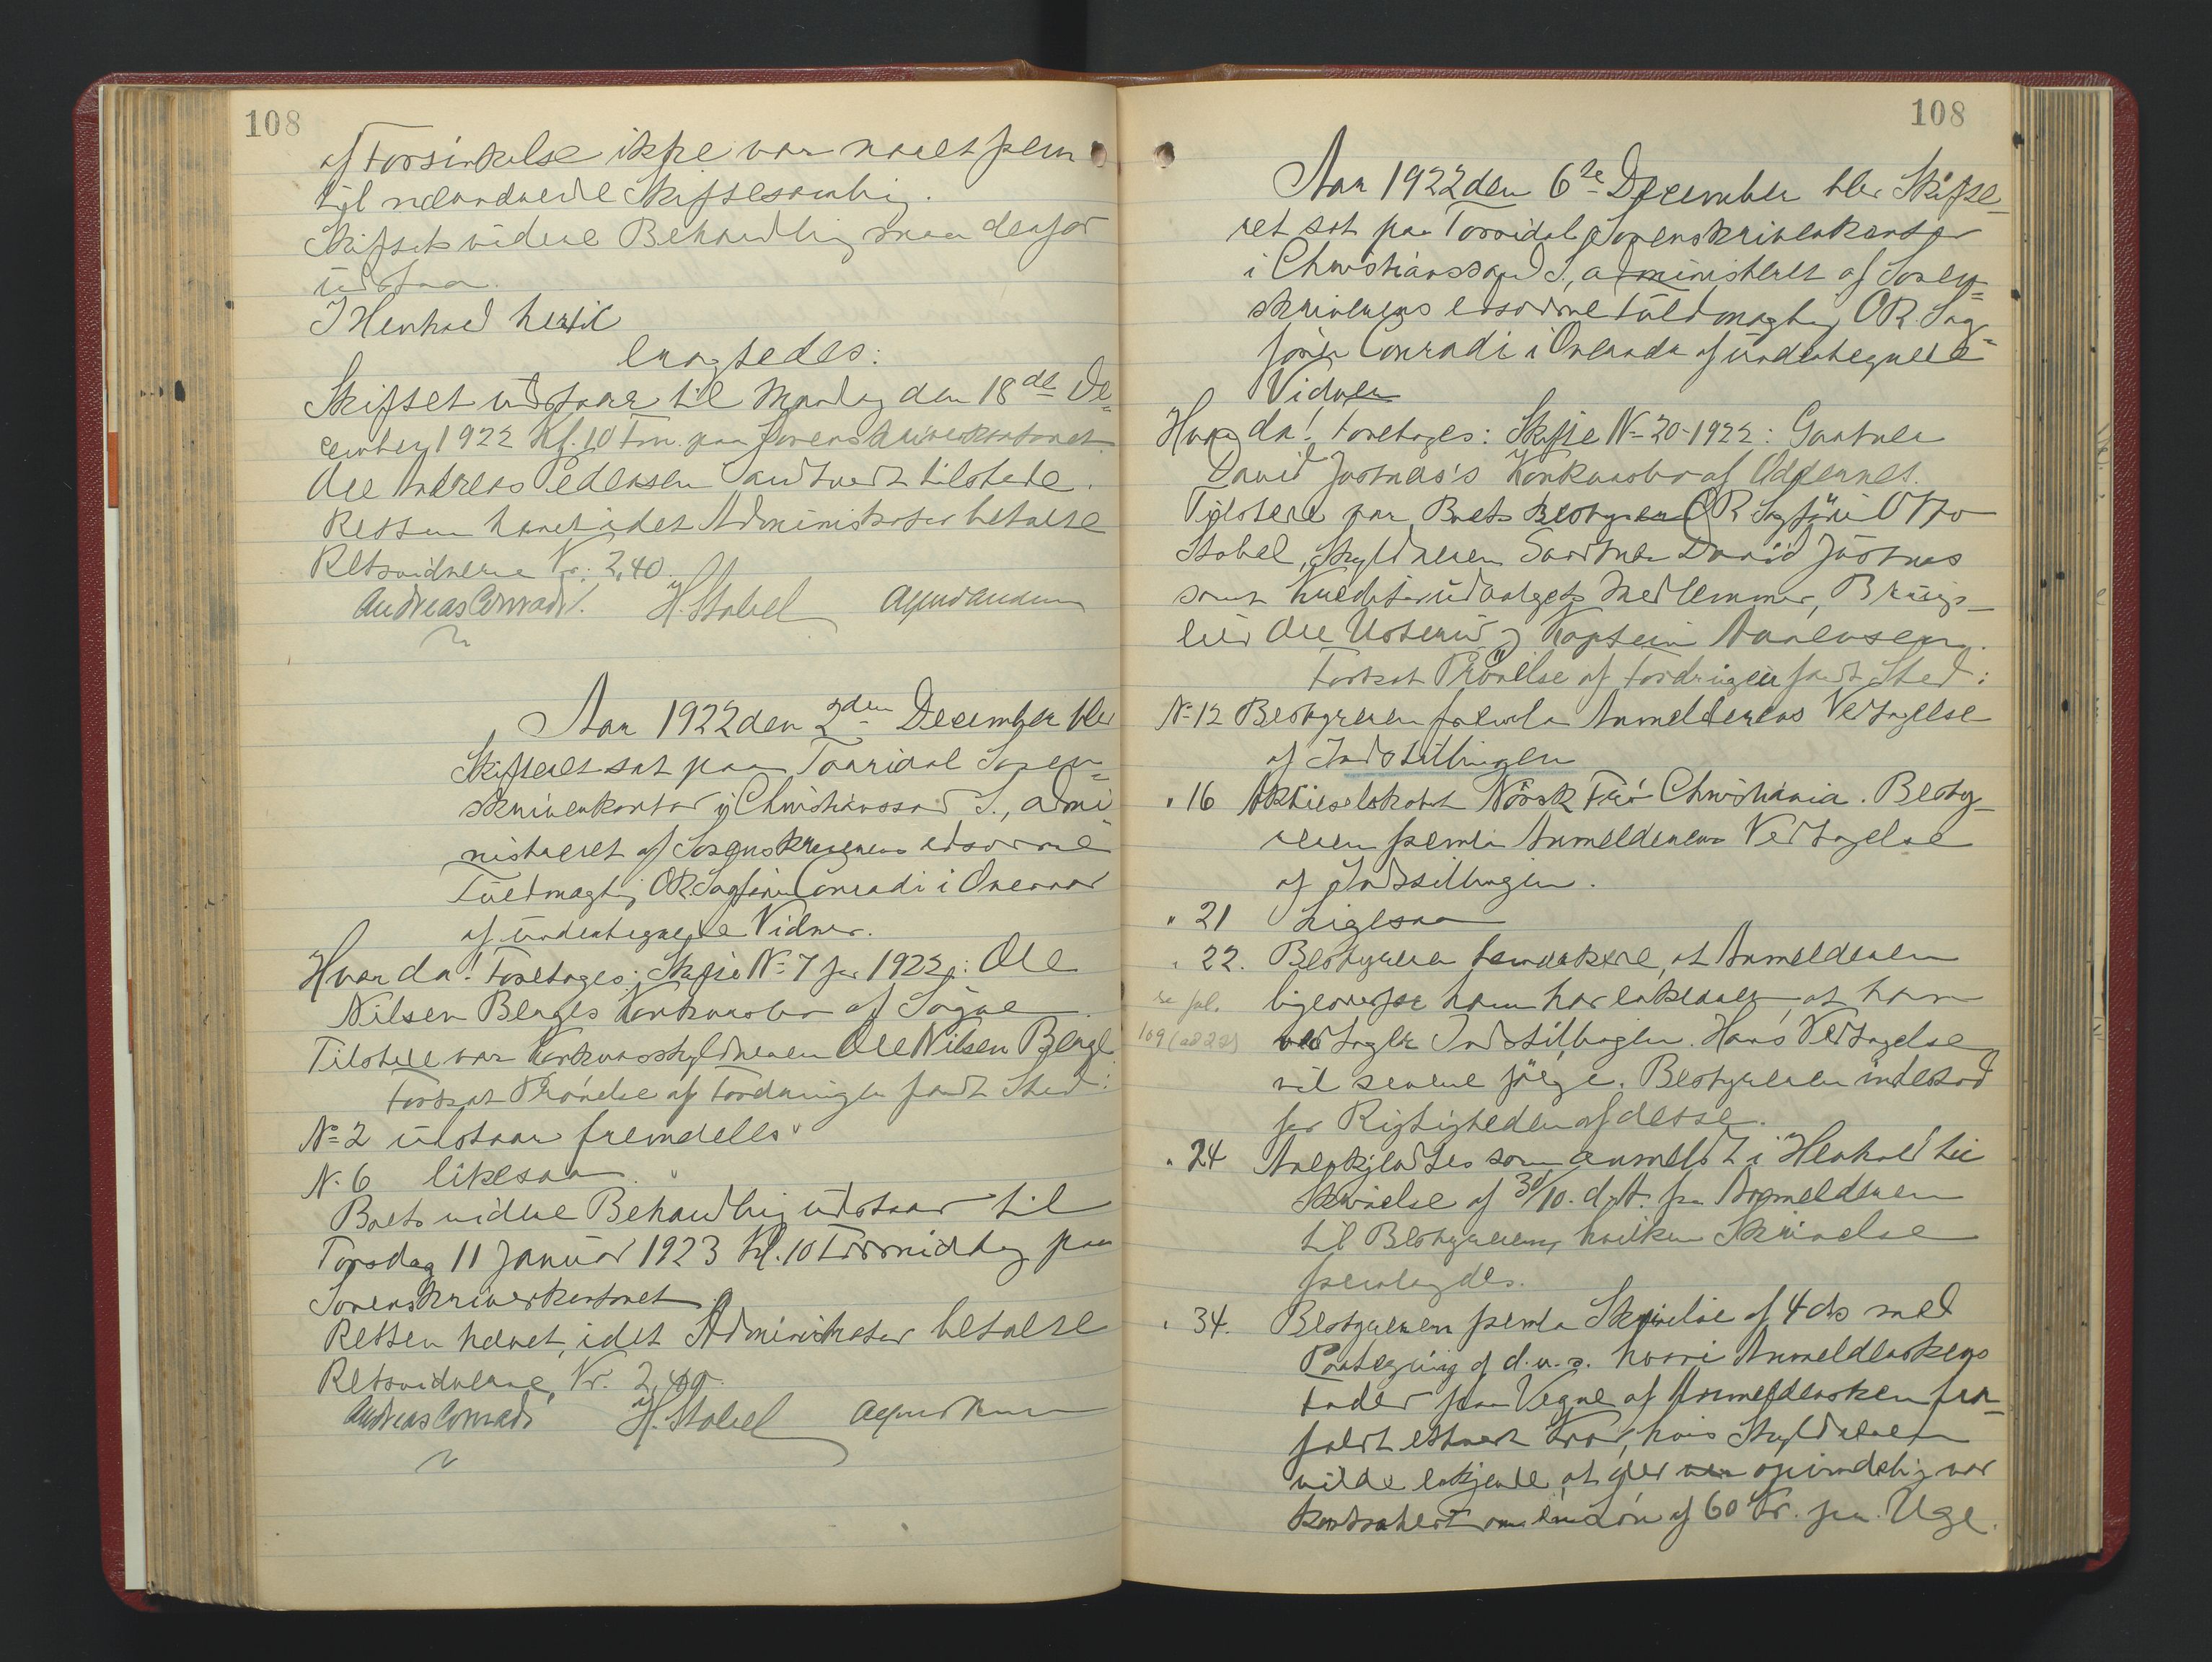 108
af Forsinkelse ikke var naaet frem
til nærværende Skiftesamling.
Skiftets videre Behandling maa derfor
udstaa.
I Henhold hertil
eragtedes:
Skiftet udstaar til Mandag den 18de De-
cember 1922 Kl. 10 Fm. paa Sorenskriverkontoret
Ole Andreas Pedersen tilstede.
Retten hævet idet Administrator betalte
Retsvidnerne Kr. 2,40.
Andreas Conradi. H. Stabel
Aar 1922 den 2den December blev
Skifteret sat paa Torridal Soren-
skriverkontor i Christianssand S., admi-
nistreret af Sorenskriverens edsvorne
Fuldmægtig OR.Sagfører Conradi i Overvær
af undertegnede Vidner.
Hvor da! Foretoges: Skifte No 7 for 1922: Ole
Nilsen Berges Konkursbo af Søgne
Tilstede var Konkursskyldneren Ole Nilsen Berge
Fortsat Prøvelse af Fordringer fandt Sted:
No 2 udstaar fremdeles
N. 6 likesaa
Boets videre Behandling udstaar til
Torsdag 11 Januar 1923 Kl. 10 Formiddag paa
Sorenskriverkontoret
Retten hævet, idet Administrator betalte
Retsvidnerne Kr. 2,40.
Andreas Conradi H. Stabel
108
Aar 1922 den 6te December blev Skifte-
ret sat paa Torridal Sorenskriverkontor
i Christianssand S., administreret af Soren-
skriverens edsvorne Fuldmægtig OR. Sag-
fører Conradi i Overvær af undertegnede
Vidner
Hvor da! Foretoges: Skifte No 20-1922: Gartner
David Jortnæs's Konkursbo af Oddernes.
Tilstede var Boets Bestyrer OR Sagfører Otto
Stabel, Skyldneren Gartner David Jortnæs
samt Kreditorudvalgets Medlemmer, Brugs-
eier Ole Usterud og Kaptein Aanensen.
Fortsat Prøvelse af Fordringer fandt Sted:
No 12 Bestyreren fremla Anmelderens Vedtagelse
af Indstillingen
" 16 Aktieselskabet Norsk Frø Christiania. Besty-
reren fremla Anmelderens Vedtagelse
af Indstillingen.
" 21 Ligesaa
" 22. Bestyreren bemærkede, at Anmelderen
se fol. ligeoverfor ham har erklæret, at han
109 (ad 22) vedtager Indstillingen. Hans Vedtagelse
vil senere følge. Bestyreren indestod
for Rigtigheden af dette.
" 24 Anerkjendtes som anmeldt i Henhold til
Skrivelse af 30/10. d.A. fra Anmelderen
til Bestyreren, hvilken Skrivelse
fremlagdes.
" 34. Bestyreren fremla Skrivelse af 4 ds med
Paategning af d.u.s. hvori Anmelderskens
Fader paa Vegne af Anmeldersken fra-
faldt ethvert Krav, hvis Skyldneren
vilde erkjende, at der oprindelig var
kontrahert om en Løn af 60 Kr. pr. Uge.